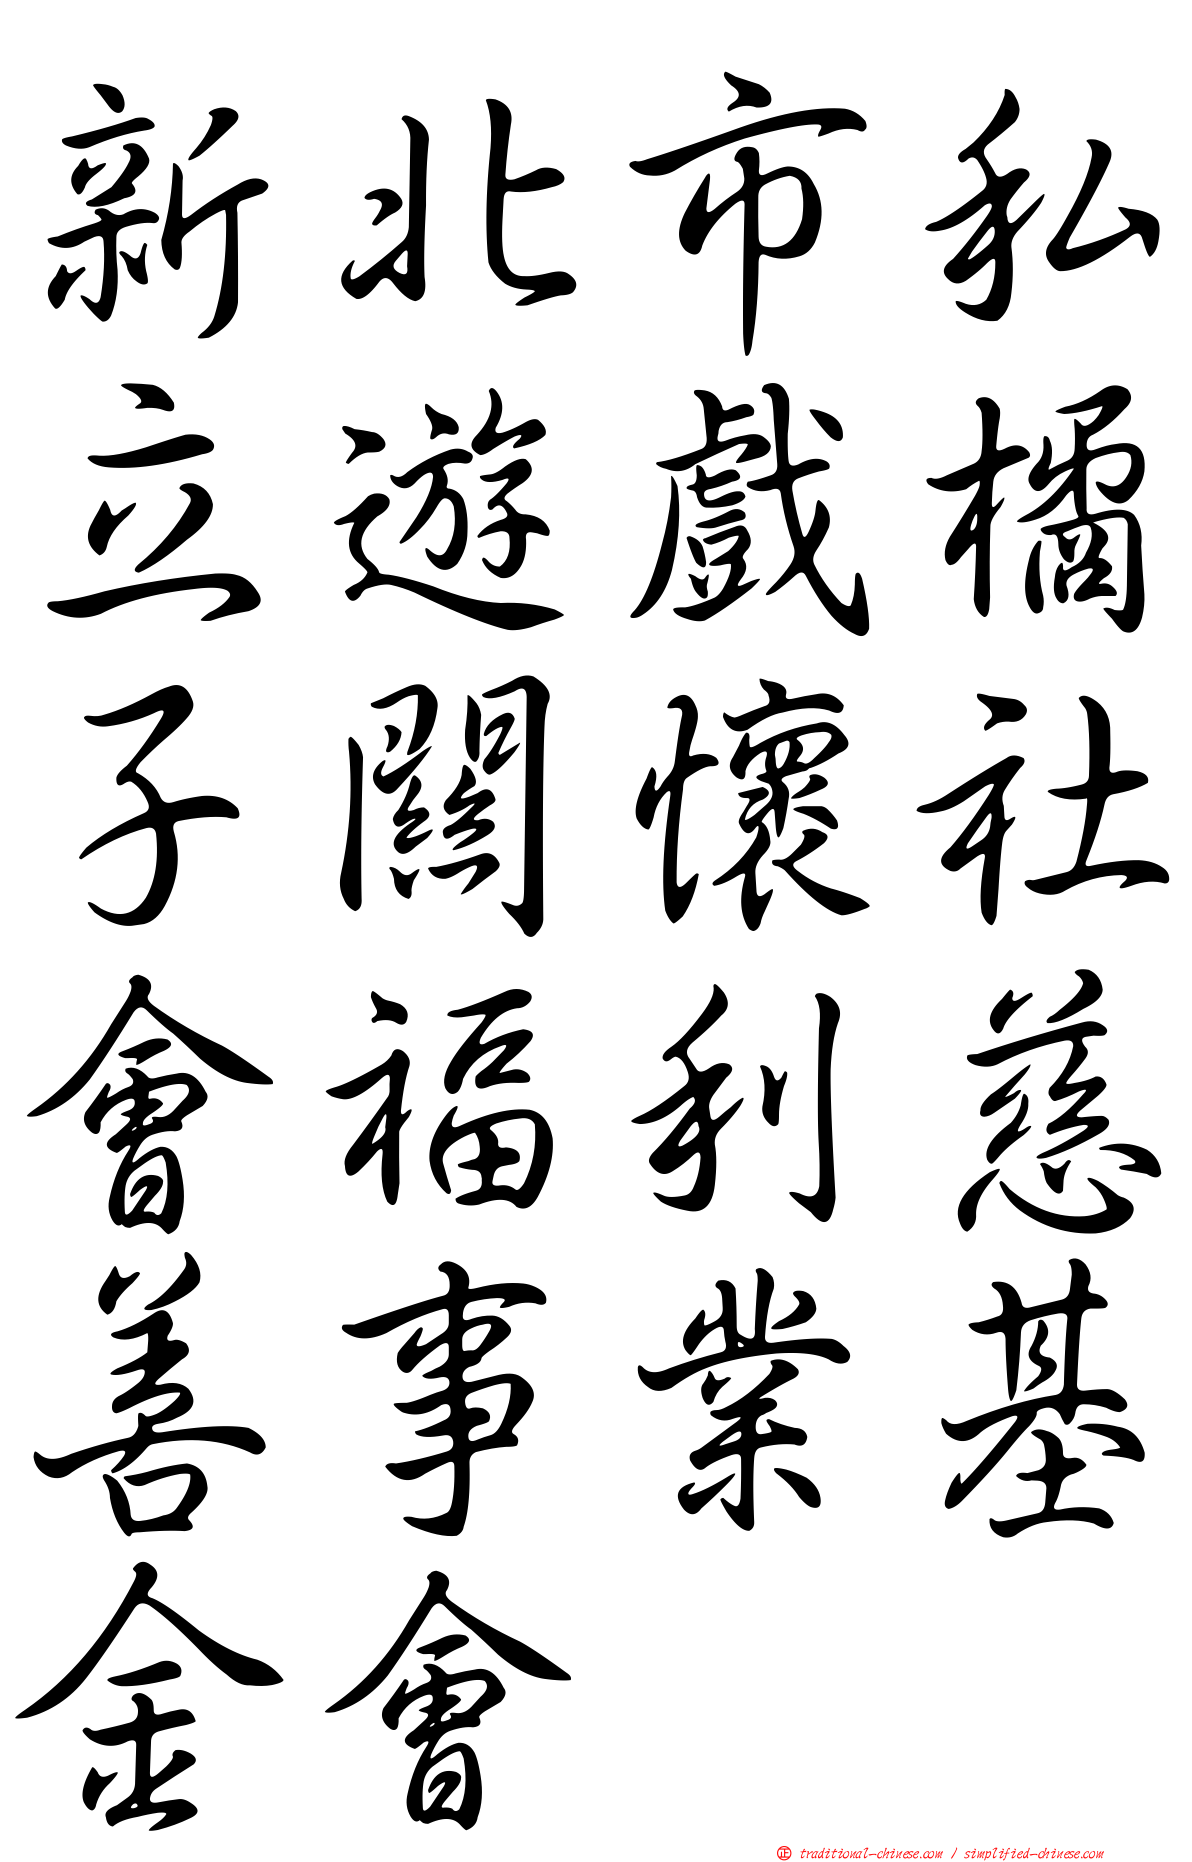 新北市私
立遊戲橘
子關懷社
會福利慈
善事業基
金會
正 traditional-chinese.com / simplified-chinese.com